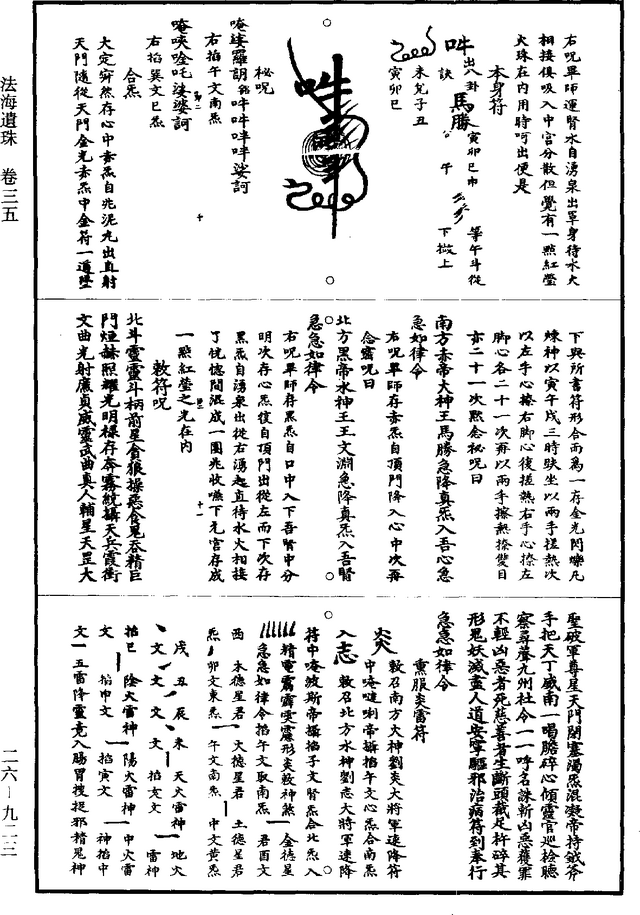 右呪畢師運腎水自湧泉出單身待水火
相接俱吸入中宮分散但覺有一點紅瑩
火珠在内用時呵出便是
本身符
吽出八卦 寅卯巳申 等午斗從
訣 馬勝 午 下撤上
未兌子丑
寅卯巳
秘呪
唵婁羅謅吽吽吽吽娑訶
右掐午文南炁
唵唊唫吒婆婆訶
右掐巽文巳炁
合炁
大定寂然存心中赤炁自兆泥丸出直射
天門隨從天門金光赤炁中金符一道墜
下與所書符形合而為一存金光閃爍凡
煉神以寅午戌三時趺坐以兩手搓熱次
以左手心擦右脚心後搓熱右手心擦左
脚心各二十一次弃以兩手擦熱擦雙目
亦二十一次黙念秘呪曰
南方赤帝大神王馬勝急降真炁入吾心急
急如律令
右呪畢師存赤炁自頂門降入心中次再
念靈呪曰
北方黑帝水神王王文淵急降真炁入吾腎
急急如律令
右呪畢師存黑炁自口中入下吾腎中分
明次存心炁復自頂門出從左而下次存
黑炁自湧泉出從右湧起直待水火相接
了恍惚間混成一團兆收嚥下元宮存成
一點紅瑩之光在内
敕符呪
北斗靈靈斗柄前星貪狼操惡食鬼吞精巨
門烜赫照耀光明祿存奔霧統攝天兵霞衝
文曲光射廉貞威靈武曲真人輔星天罡大
聖破軍尊星天門閉塞渴炁混凝帝持鉞斧
手把天丁威南一喝膽碎心傾靈官巡檢聽
察尋聲九州社令一一呼名誅斬凶惡獲罪
不輕凶惡者死慈善者生斷頭截足杵碎其
形鬼妖滅盡人道安寧驅邪治病符到奉行
急急如律令
熏服炎雷符
炎 敕召南方大神劉炎大將軍速降符
中唵噠唎帝攝掐午文心炁合南炁
入志 敕召北方水神劉志大將軍速降
符中唵波斯帝攝掐子文腎炁合北炁入
精電霹靂雯靂形炎敕神煞 金德星
急急如律令掐午文取南炁 君酉文
西 木德星君 火德星君 土德星君
炁 卯文東炁 午文南炁 中文黄炁
戌 丑 辰 未 天火雷神 地火
文 文 文 文 掐亥文 雷神
掐巳 陰火雷神 陽火雷神 中火雷
文 掐申文 掐寅文 神掐中
文 五雷降靈竟入腸胃搜捉邪精鬼神
法海遺珠 卷三五
二六—九二三